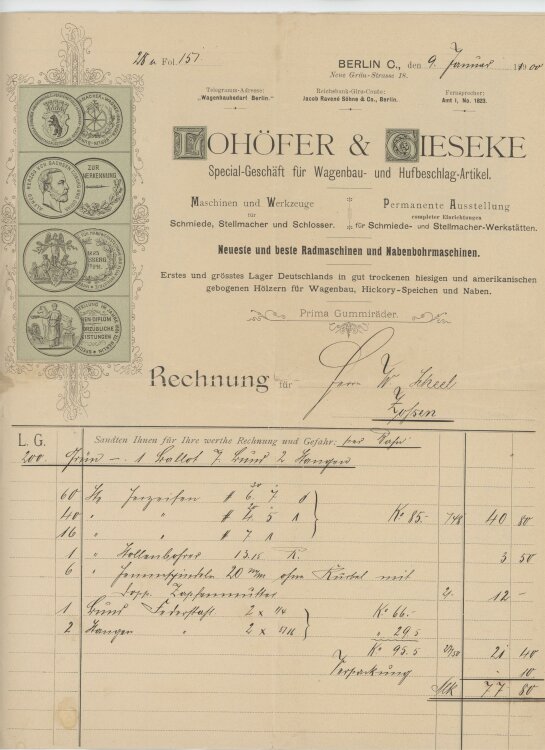 28 a Fol. 151.
BERLIN C., den 9. Januar 1900
Neue Grün-Strasse 18.
Telegramm-Adresse: „Wagenbaubedarf Berlin.“
Reichsbank-Giro-Conto: Jacob Ravené Söhne & Co., Berlin.
Fernsprecher: Amt I, No. 1823.
LOHÖFER & GIESEKE
Special-Geschäft für Wagenbau- und Hufbeschlag-Artikel.
Maschinen und Werkzeuge
für
Schmiede, Stellmacher und Schlosser.
Permanente Ausstellung
completer Einrichtungen
für Schmiede- und Stellmacher-Werkstätten.
Neueste und beste Radmaschinen und Nabenbohrmaschinen.
Erstes und grösstes Lager Deutschlands in gut trockenen hiesigen und amerikanischen
gebogenen Hölzern für Wagenbau, Hickory-Speichen und Naben.
Prima Gummiräder.
ZUR
Rechnung für Herrn W. Scheel
Zossen
L. G. Sandten Ihnen für Ihre werthe Rechnung und Gefahr: per Bahn
200. Grün — 1 Ballot 7 Bund 2 Stangen
60 St
40 " "
16 " "
K° 85.- 7/48 40 80
1 " 3 50
6 " 20 m/m ohne Kurbel mit
dopp. Zapfenmutter 2. 12 -
1 Bund Federstahl 2 x 1/4 K° 66.-
2 Stangen " 2 x 5/16 " 29 5
K° 95.5 21 40
Verpackung - 10
Mk 77 80